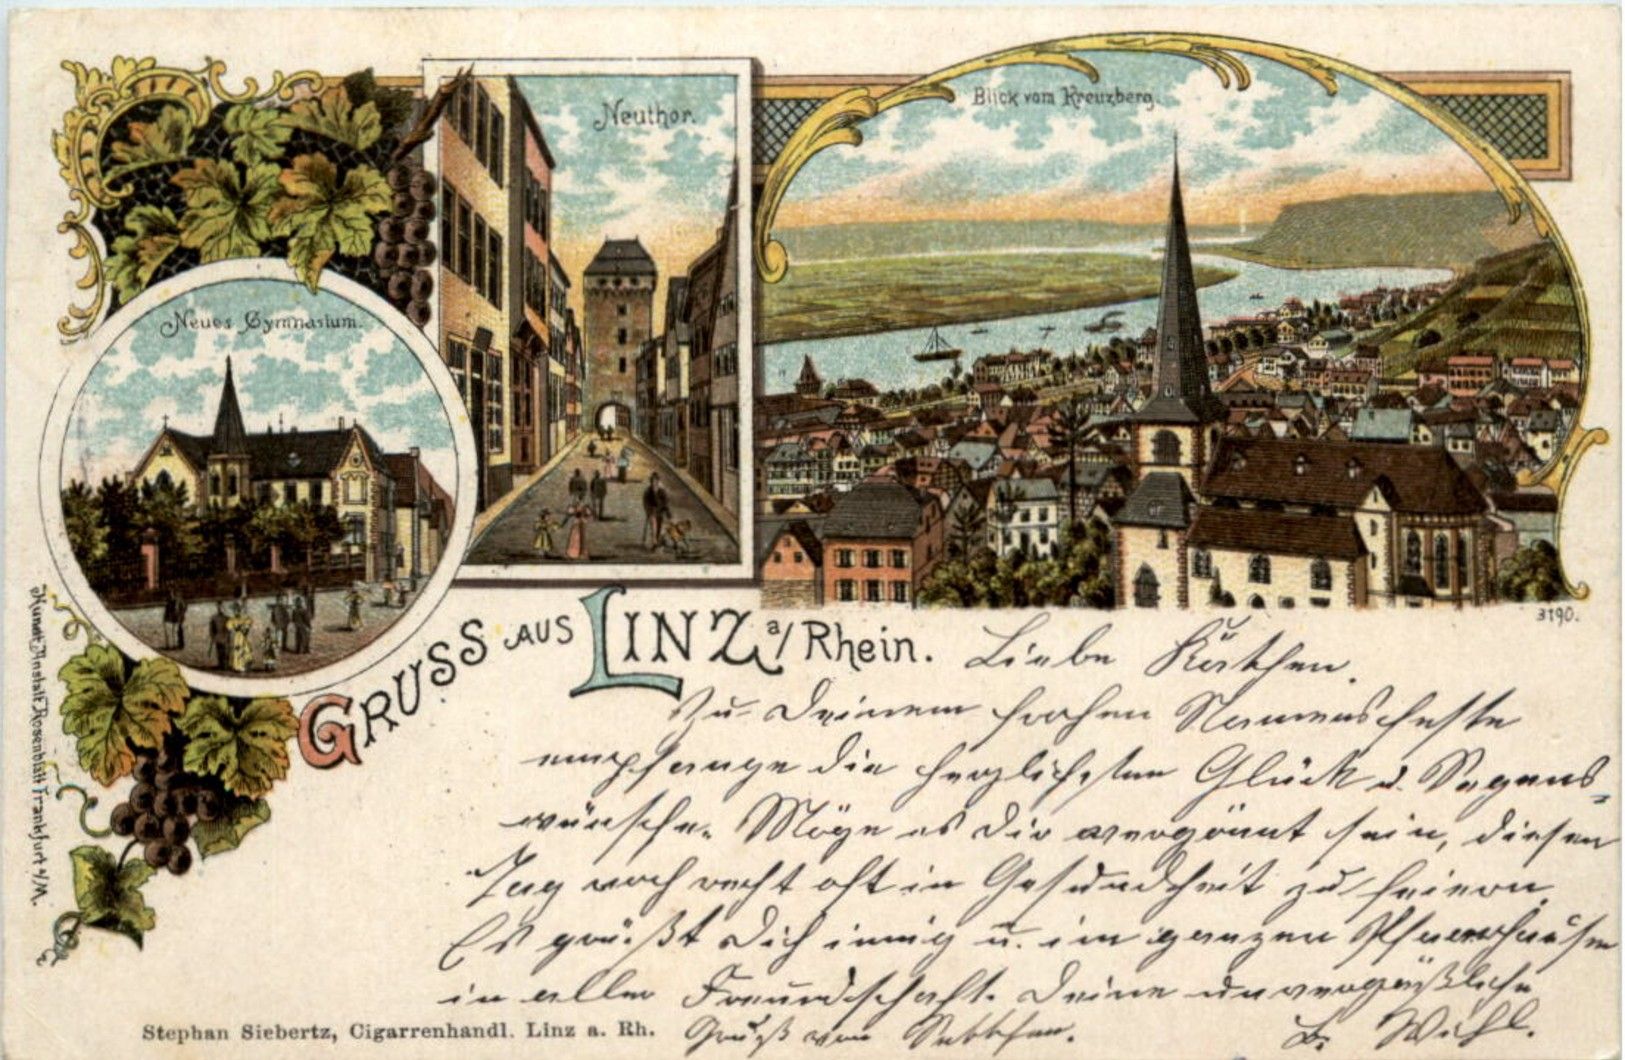 Neuthor.
Blick vom Kreuzberg.
Neues Gymnasium.
3190.
Gruss aus Linz a/Rhein.
Liebe Käthchen.
Zu Deinem frohen Namensfeste
empfange die herzlichsten Glück u. Segens-
wünsche. Möge es Dir vergönnt sein, diesen
Tag noch recht oft in Gesundheit zu feiern.
Es grüßt Dich innig u. im ganzen
in aller Freundschaft. Deine unvergäßliche
Gruß von
Kunst Anstalt Rosenblatt Frankfurt a/M.
Stephan Siebertz, Cigarrenhandl. Linz a. Rh.